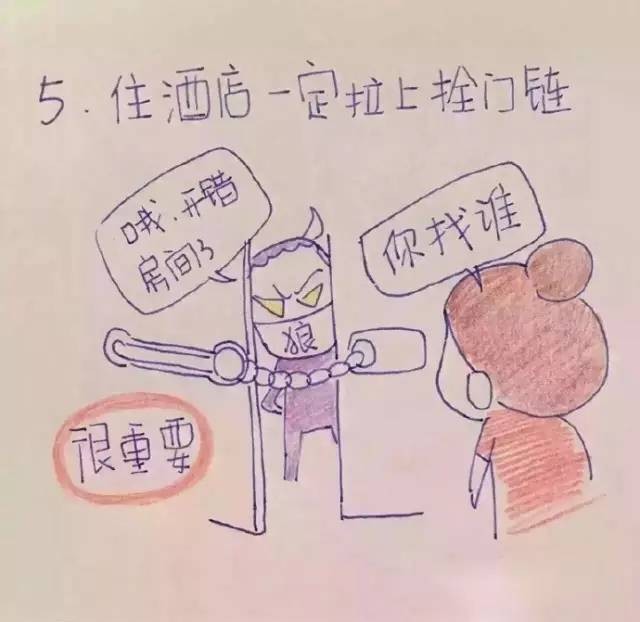 5.住酒店一定拉上拴门链
哦,开错
房间了
你找谁
狼
很重要